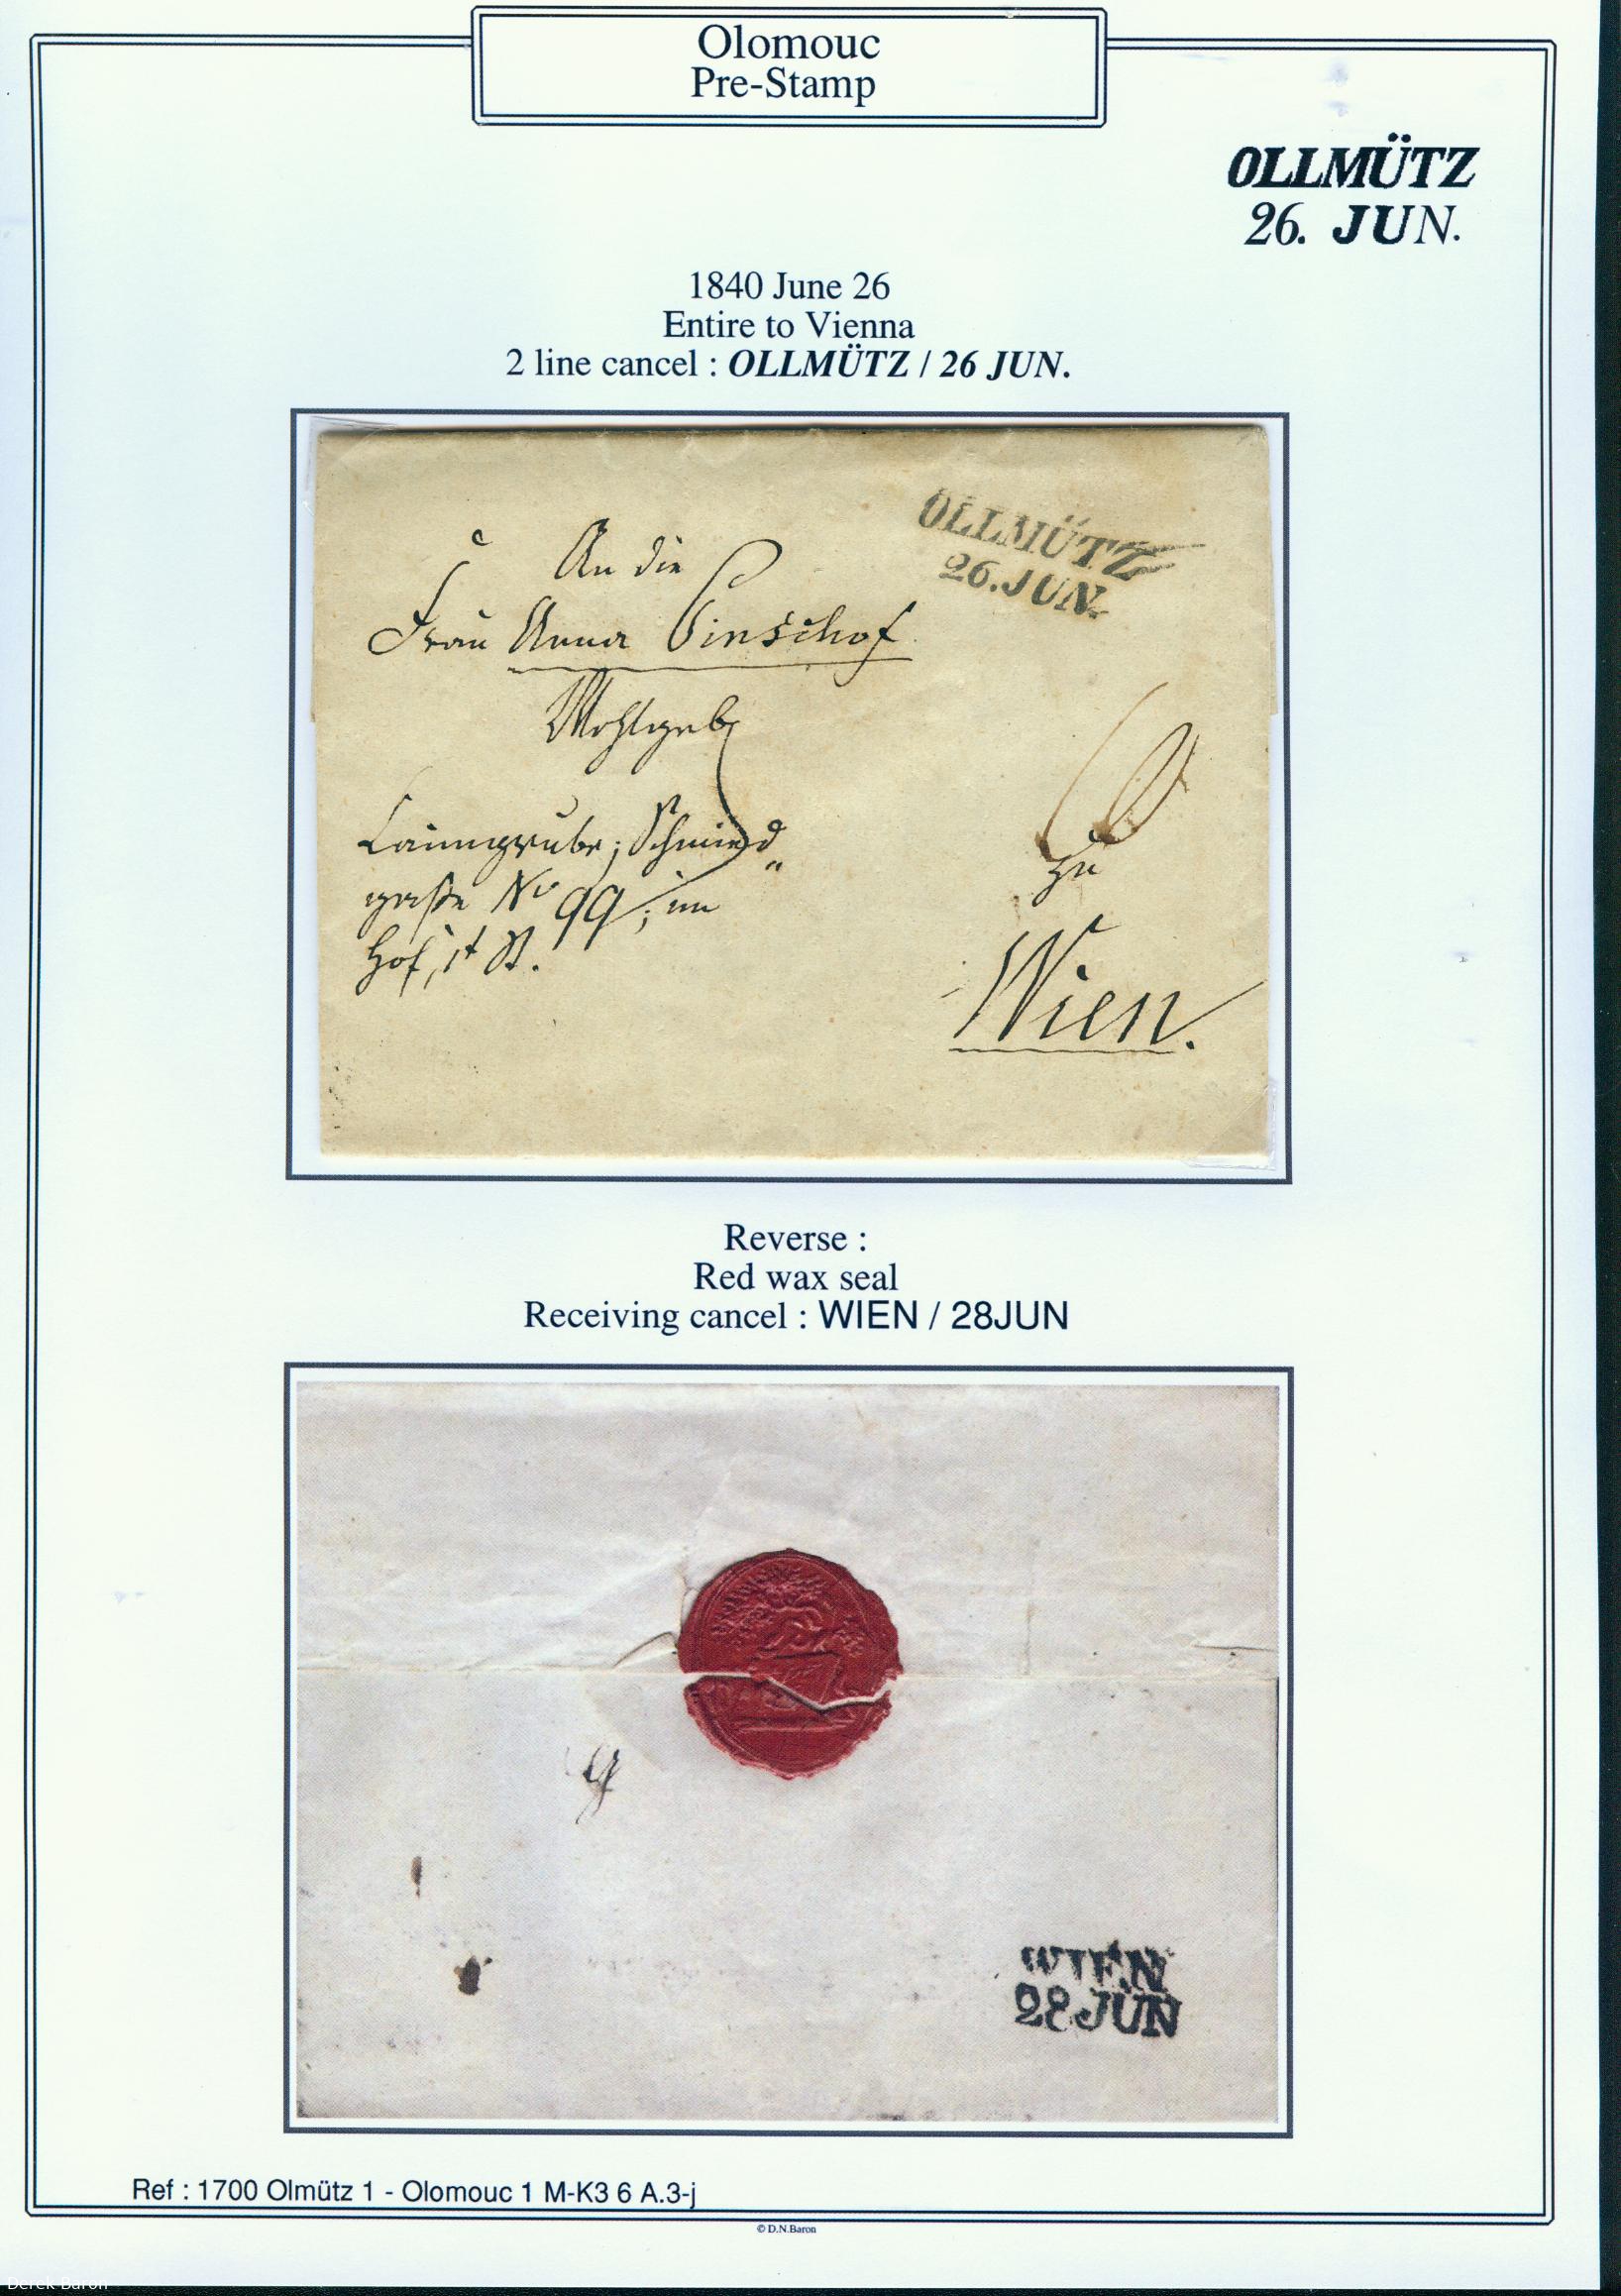 Olomouc
Pre-Stamp
OLLMÜTZ
26. JUN.
1840 June 26
Entire to Vienna
2 line cancel : OLLMÜTZ / 26 JUN.
OLLMÜTZ
26. JUN.
An die
Frau Anna Pinschof
Wohlgeb
Laimgrube, Schmied
gasse No 99, im
Hof, 1t St.
zu
Wien.
Reverse :
Red wax seal
Receiving cancel : WIEN / 28JUN
WIEN
28 JUN
Ref : 1700 Olmütz 1 - Olomouc 1 M-K3 6 A.3-j
© D.N.Baron
Derek Baron